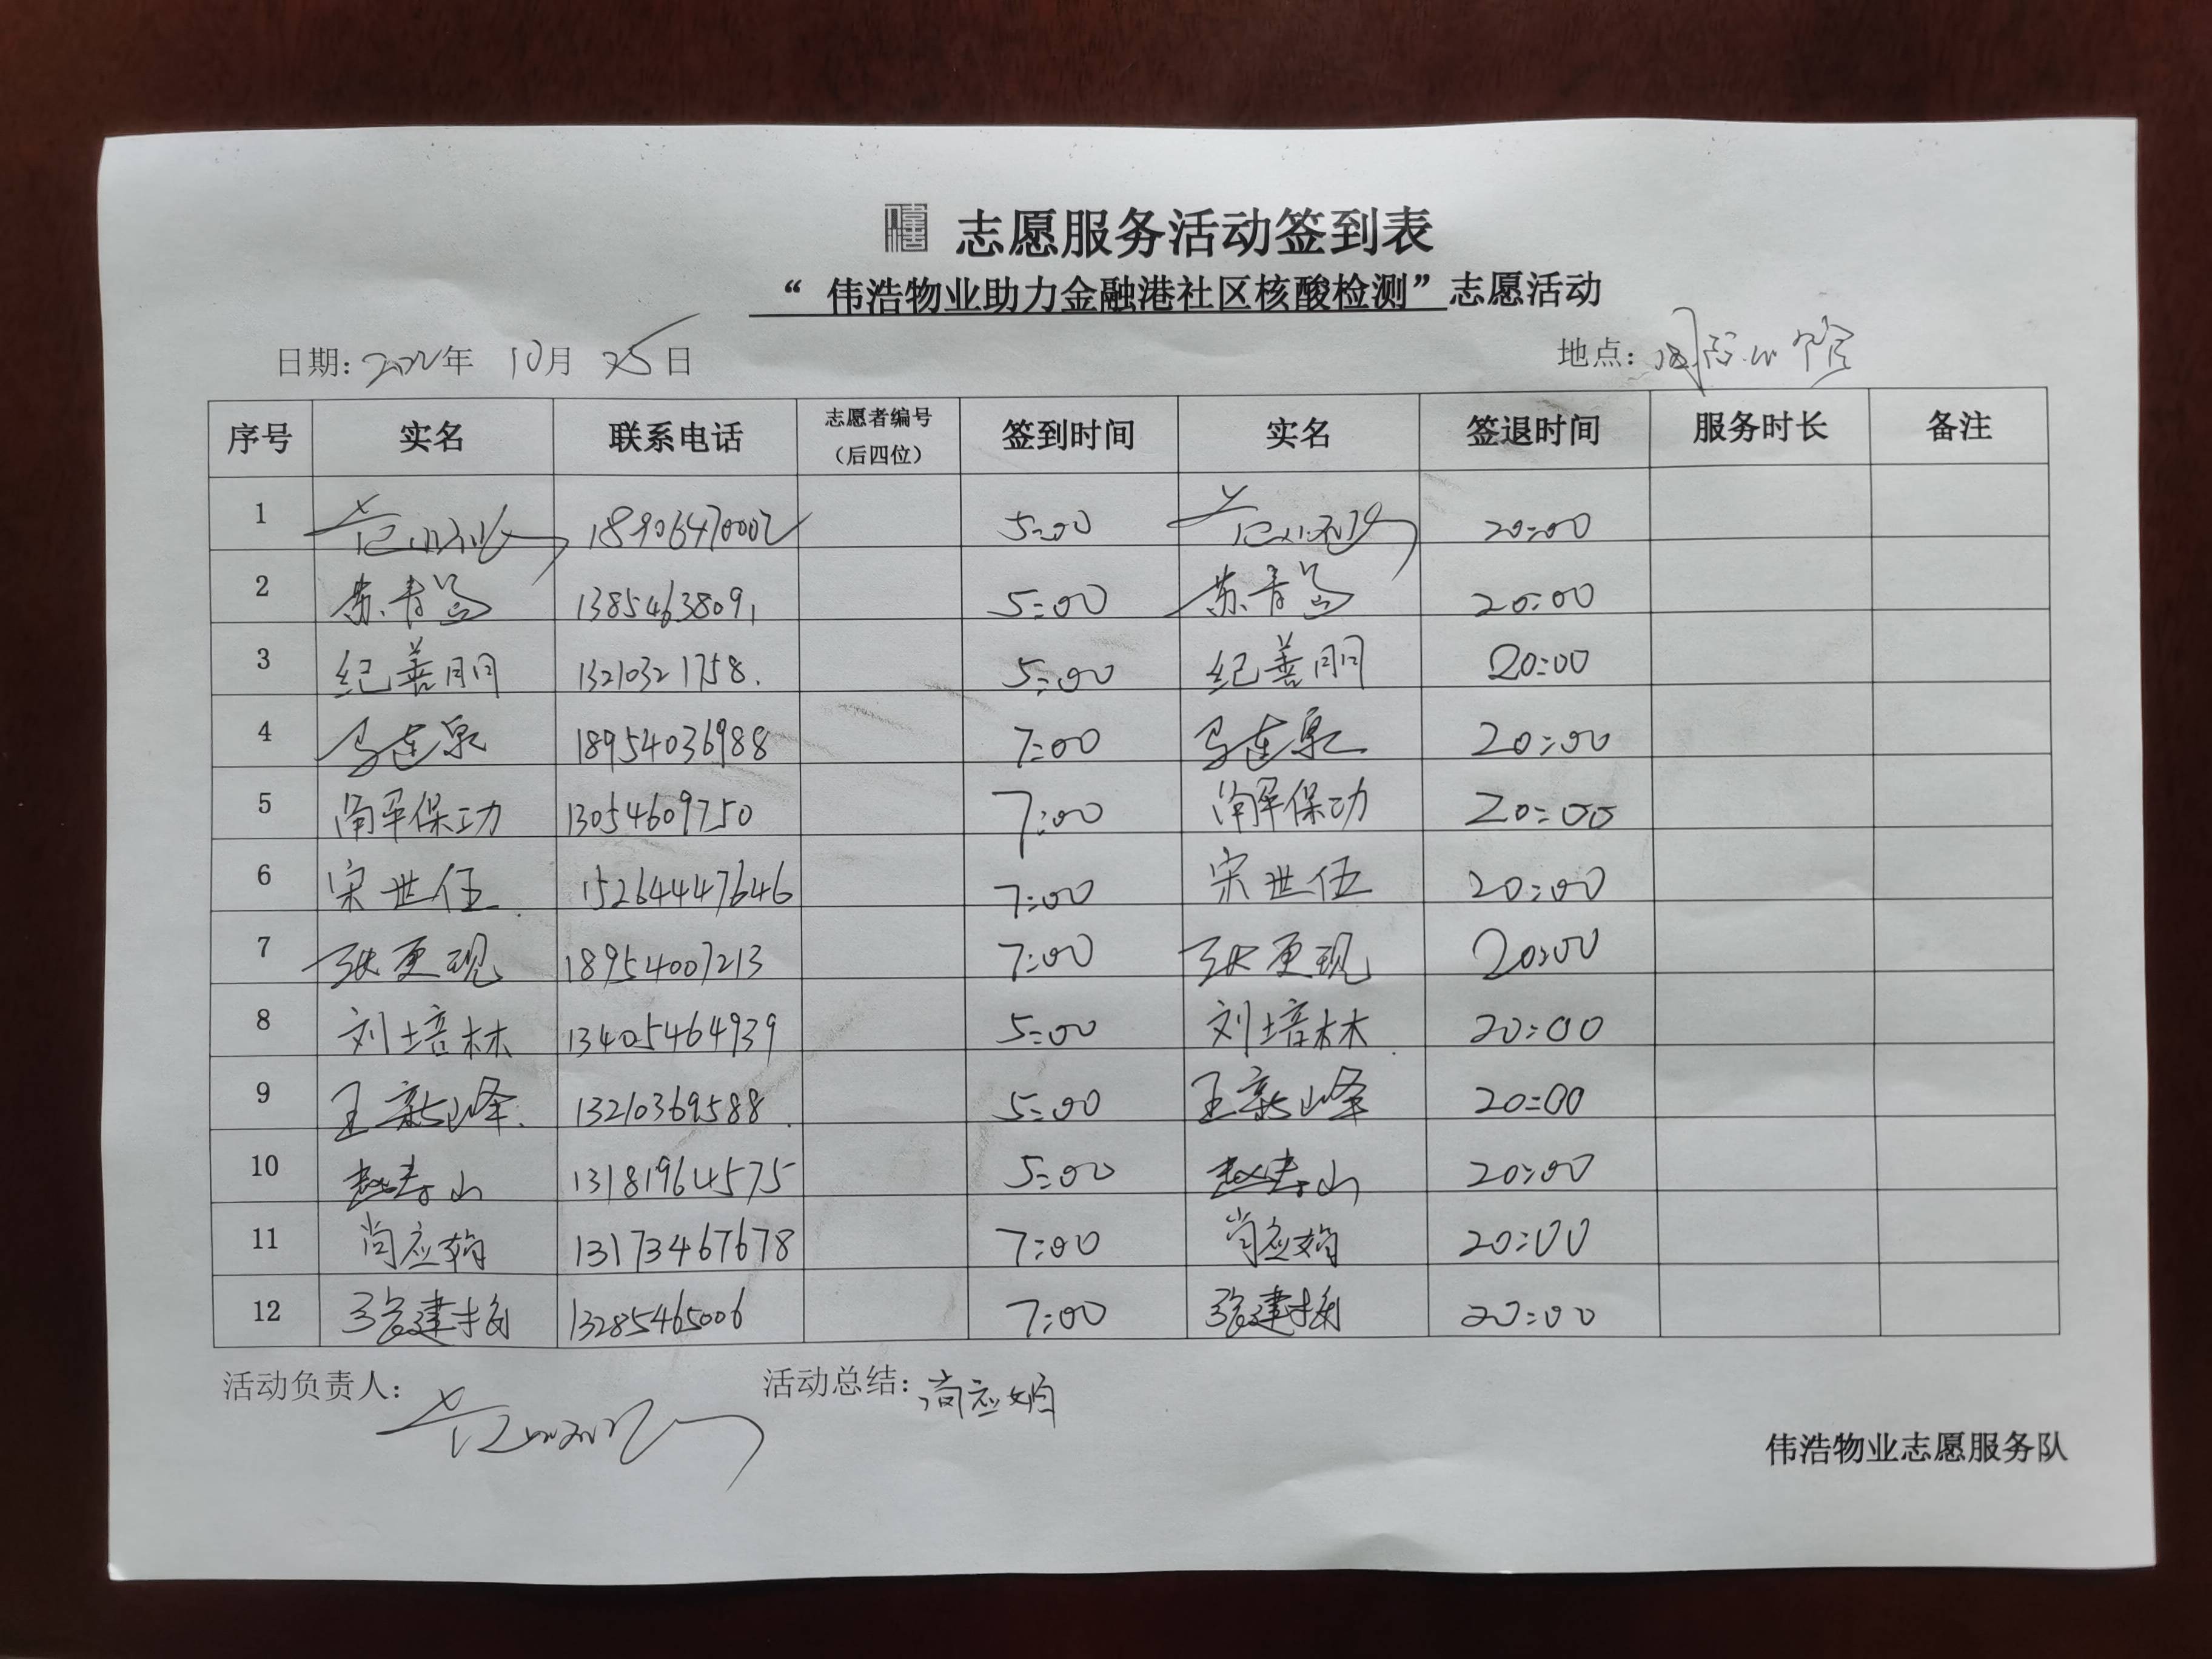 志愿服务活动签到表
“ 伟浩物业助力金融港社区核酸检测”志愿活动
日期: 2022年 10月 25日 地点:
序号 实名 联系电话 志愿者编号（后四位） 签到时间 实名 签退时间 服务时长 备注
1 18906470002 5:00 20:00
2 苏青 13854638091 5:00 苏青 20:00
3 纪善朋 1321032 1758. 5:00 纪善朋 20:00
4 马连泉 18954036988 7:00 马连泉 20:00
5 保功 13054609750 7:00 保功 20:00
6 宋世伍 15264447646 7:00 宋世伍 20:00
7 张更现 18954007213 7:00 张更现 20:00
8 刘培林 13405464939 5:00 刘培林 20:00
9 王新峰 13210369588 5:00 王新峰 20:00
10 赵寿山 13181964575 5:00 赵寿山 20:00
11 尚应娟 13173467678 7:00 尚应娟 20:00
12 张建梅 13285465006 7:00 张建梅 20:00
活动负责人: 活动总结: 尚应娟
伟浩物业志愿服务队